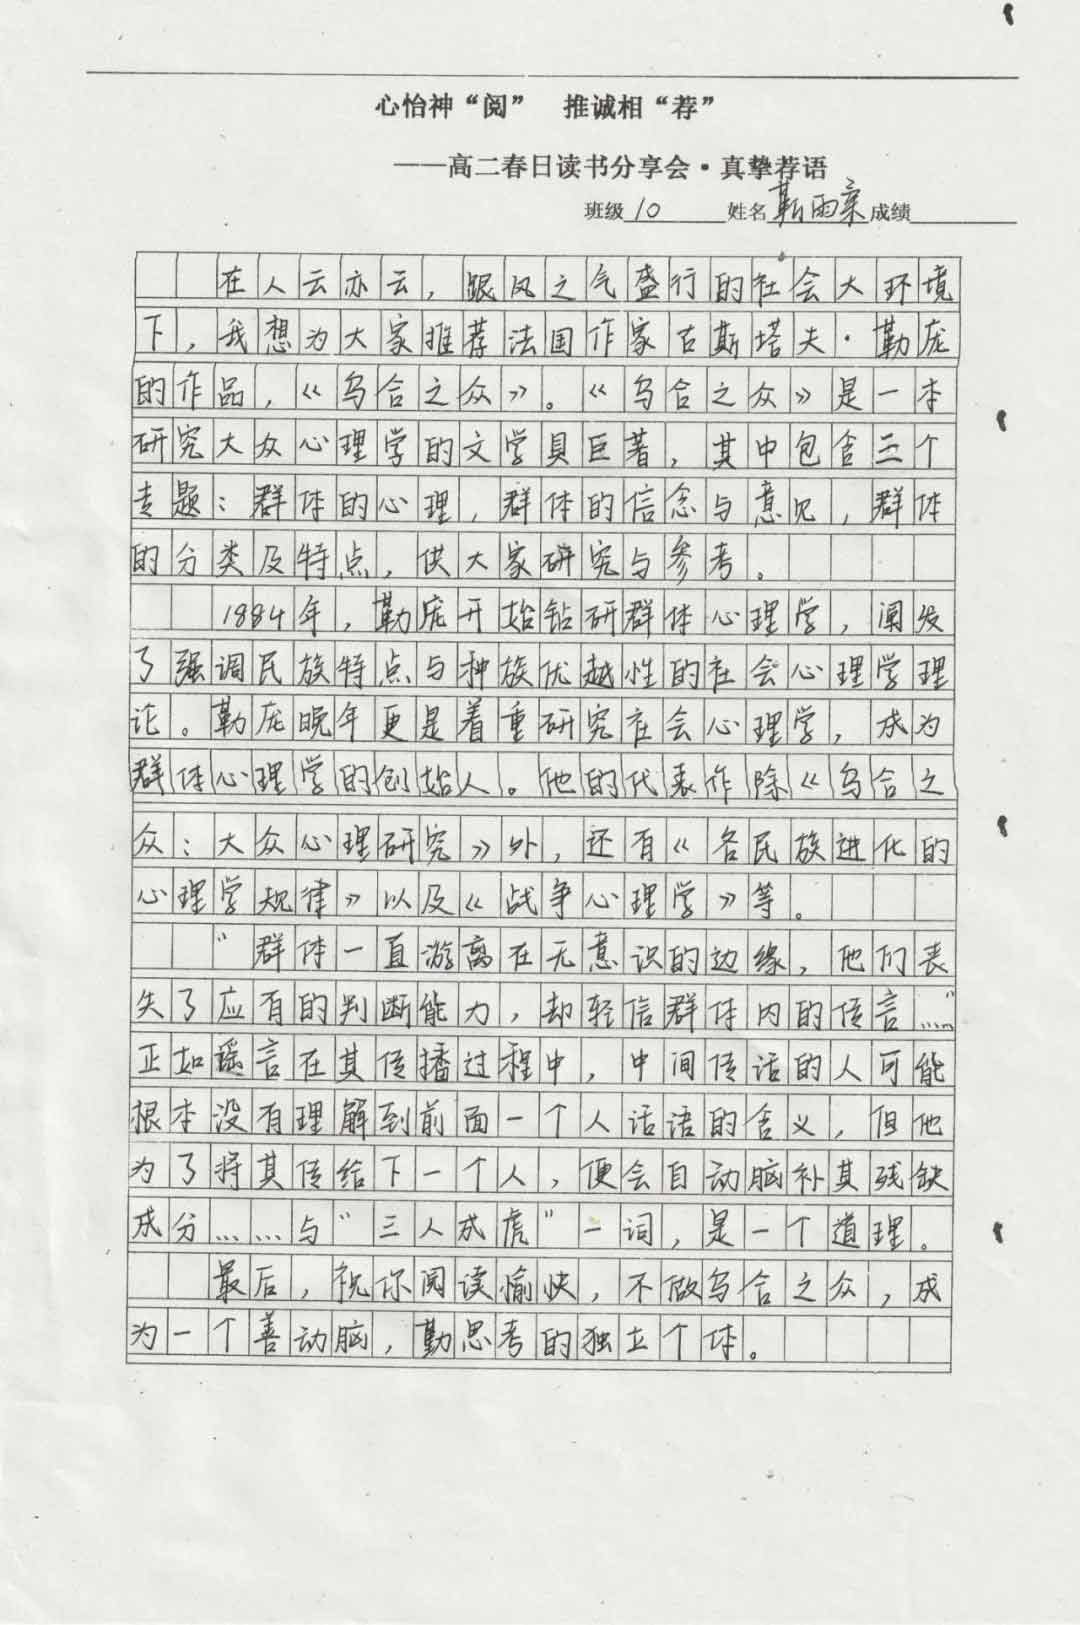 心怡神“阅” 推诚相“荐”
——高二春日读书分享会·真挚荐语
班级 10 姓名 靳雨亲 成绩
在人云亦云，跟风之气盛行的社会大环境
下，我想为大家推荐法国作家古斯塔夫·勒庞
的作品，《乌合之众》。《乌合之众》是一本
研究大众心理学的文学具巨著，其中包含三个
专题：群体的心理，群体的信念与意见，群体
的分类及特点，供大家研究与参考。
1884年，勒庞开始钻研群体心理学，阐发
了强调民族特点与种族优越性的社会心理学理
论。勒庞晚年更是着重研究社会心理学，成为
群体心理学的创始人。他的代表作除《乌合之
众：大众心理研究》外，还有《各民族进化的
心理学规律》以及《战争心理学》等。
“群体一直游离在无意识的边缘，他们丧
失了应有的判断能力，却轻信群体内的传言……”
正如谣言在其传播过程中，中间传话的人可能
根本没有理解到前面一个人话语的含义，但他
为了将其传给下一个人，便会自动脑补其残缺
成分……与“三人成虎”一词，是一个道理。
最后，祝你阅读愉快，不做乌合之众，成
为一个善动脑，勤思考的独立个体。